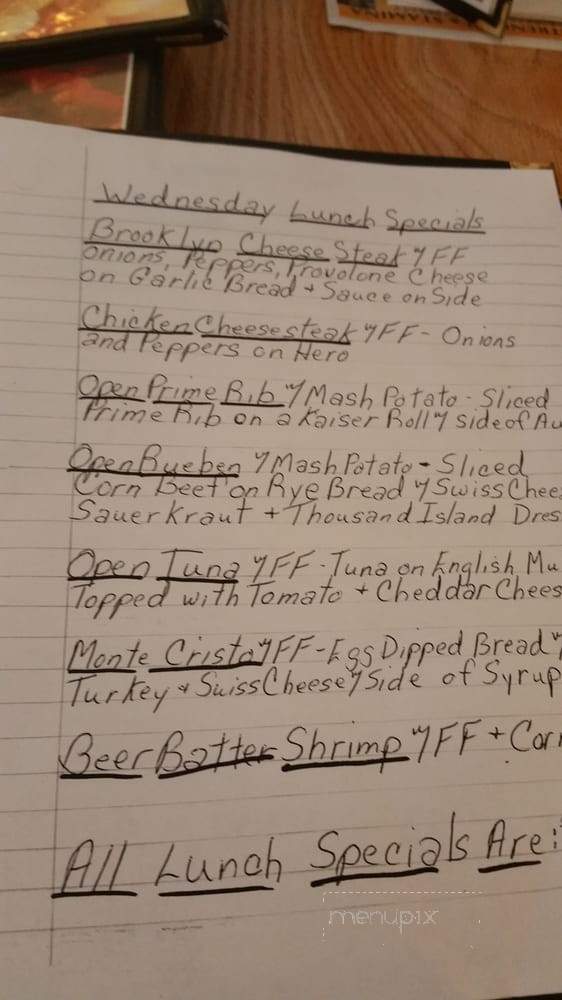 STAMINA
Wednesday Lunch Specials
Brooklyn Cheese Steak w/FF
Onions, Peppers, Provolone Cheese
on Garlic Bread + Sauce on Side
Chicken Cheesesteak w/FF - Onions
and Peppers on Hero
Open Prime Rib w/Mash Potato - Sliced
Prime Rib on a Kaiser Roll w/ side of Au
Open Rueben w/Mash Potato - Sliced
Corn Beef on Rye Bread w/Swiss Chee
Sauerkraut + Thousand Island Dres
Open Tuna w/FF - Tuna on English Mu
Topped with Tomato + Cheddar Chees
Monte Cristo w/FF - Egg Dipped Bread w/
Turkey + Swiss Cheese w/ Side of Syrup
Beer Batter Shrimp w/FF + Cor
All Lunch Specials Are:
menupix